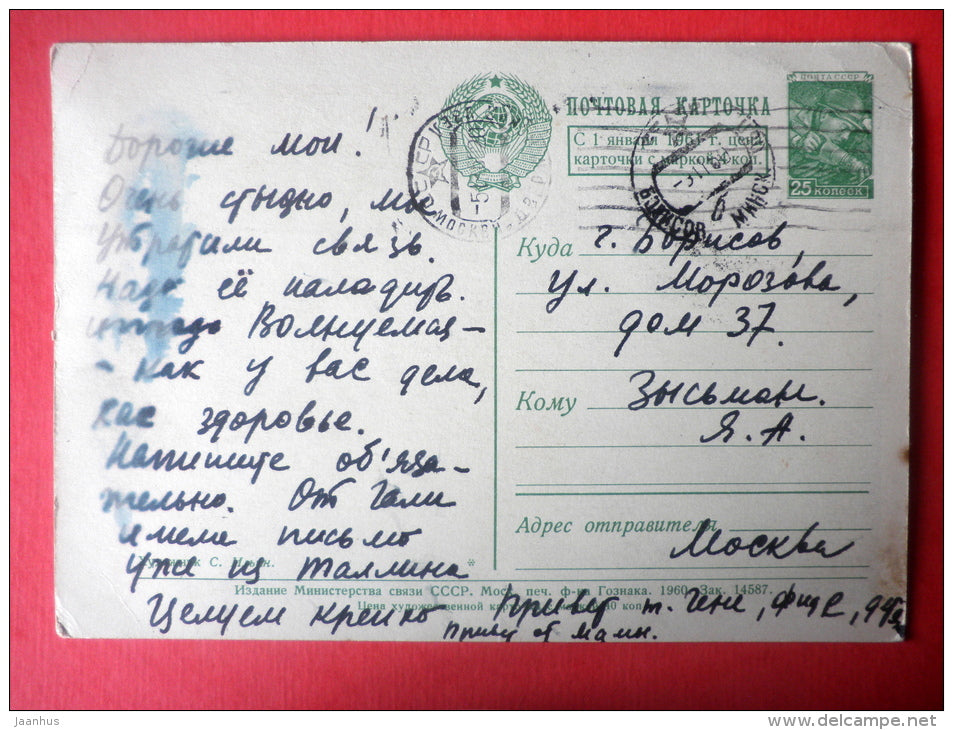 Дорогие мои!
Очень стыдно, мы
утратили связь.
Надо её наладить.
Волнуемся -
- как у вас дела,
как здоровье.
Напишите об'яза-
тельно. От Гали
имели письмо
Уже из Таллина
Целуем крепко Привет т. Гене, Фире,
Привет от Мамы.
ПОЧТА СССР
25 КОПЕЕК
ПОЧТОВАЯ КАРТОЧКА
С 1 января 1961 г. цена
карточки с маркой коп.
МОСКВА
БОРИСОВ МИНСК
Куда г. Борисов,
ул. Морозова,
дом 37.
Кому Зысьман.
Я. А.
Адрес отправителя
Москва
Художник С.
Издание Министерства связи СССР. Моск. печ. ф-ка Гознака. 1960. Зак. 14587.
Цена художественной карточки с маркой 40 коп.
jaanhus
www.delcampe.net